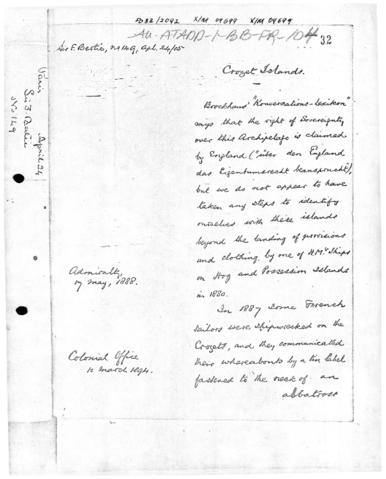 FO 82/2092 X/M 09699 X/M 09699
AU-ATADD-1-BB-FR-104
32
Sir F. Bertie, No 149, Apl. 24/05
Paris April 24
Sir F. Bertie
No 149
Crozet Islands.
Brockhaus' "Konversations-Lexikon"
says that the right of Sovereignty
over this Archipelago is claimed
by England ("über den England
das Eigentumsrecht beansprucht),
but we do not appear to have
taken any steps to identify
ourselves with these islands
beyond the landing of provisions
and clothing by one of H.M.'s Ships
on Hog and Possession Islands
in 1880.
Admiralty,
17 May, 1888.
In 1887 some French
sailors were shipwrecked on the
Crozets, and they communicated
their whereabouts by a tin label
fastened to the neck of an
albatross
Colonial Office
12 March 1894.